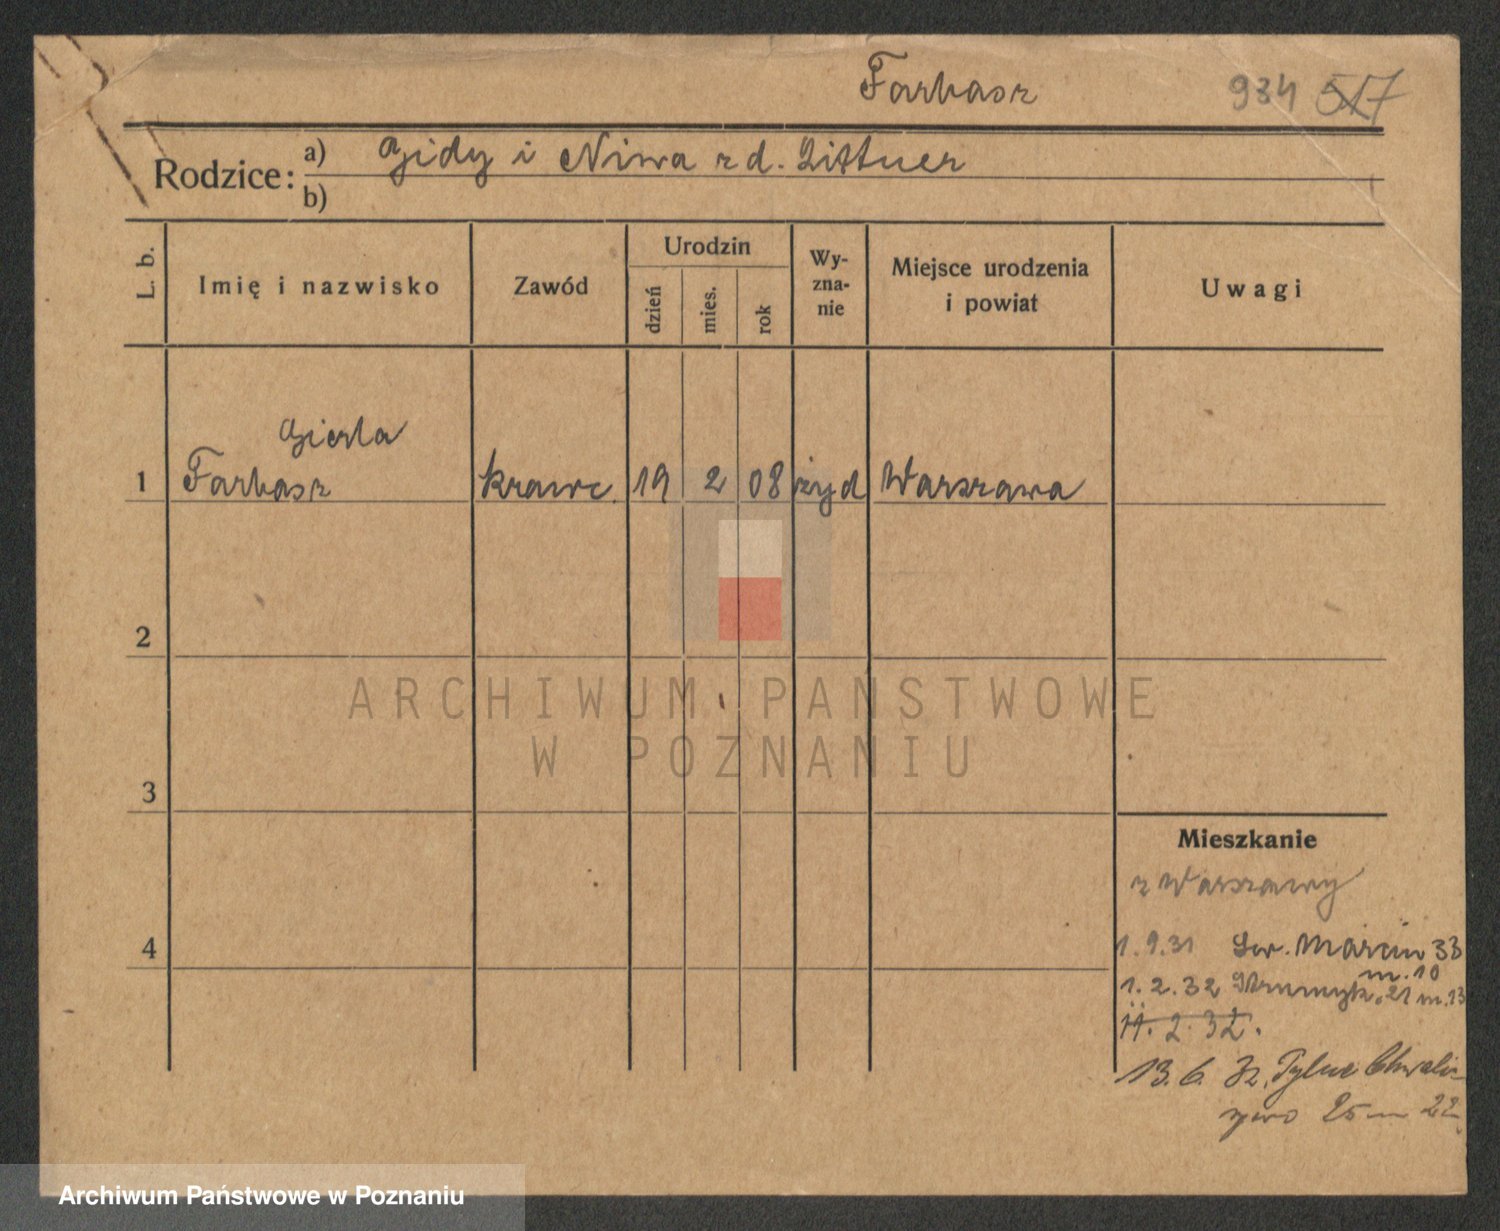 Farbasz 934 517
Rodzice: a) Gidy i Niwa z d. Littner
b)
L. b. Imię i nazwisko Zawód Urodzin dzień mies. rok Wy-zna-nie Miejsce urodzenia i powiat Uwagi
Gierla
1 Farbasz krawc. 19 2 08 żyd Warszawa
2
3
4
Mieszkanie
z Warszawy
1.9.31 Św. Marcin 33
m. 10
1.2.32 21 m. 13
11.2.32.
13.6. 32. Tylne Chwali-
szewo 25 m 22
ARCHIWUM PAŃSTWOWE
W POZNANIU
Archiwum Państwowe w Poznaniu